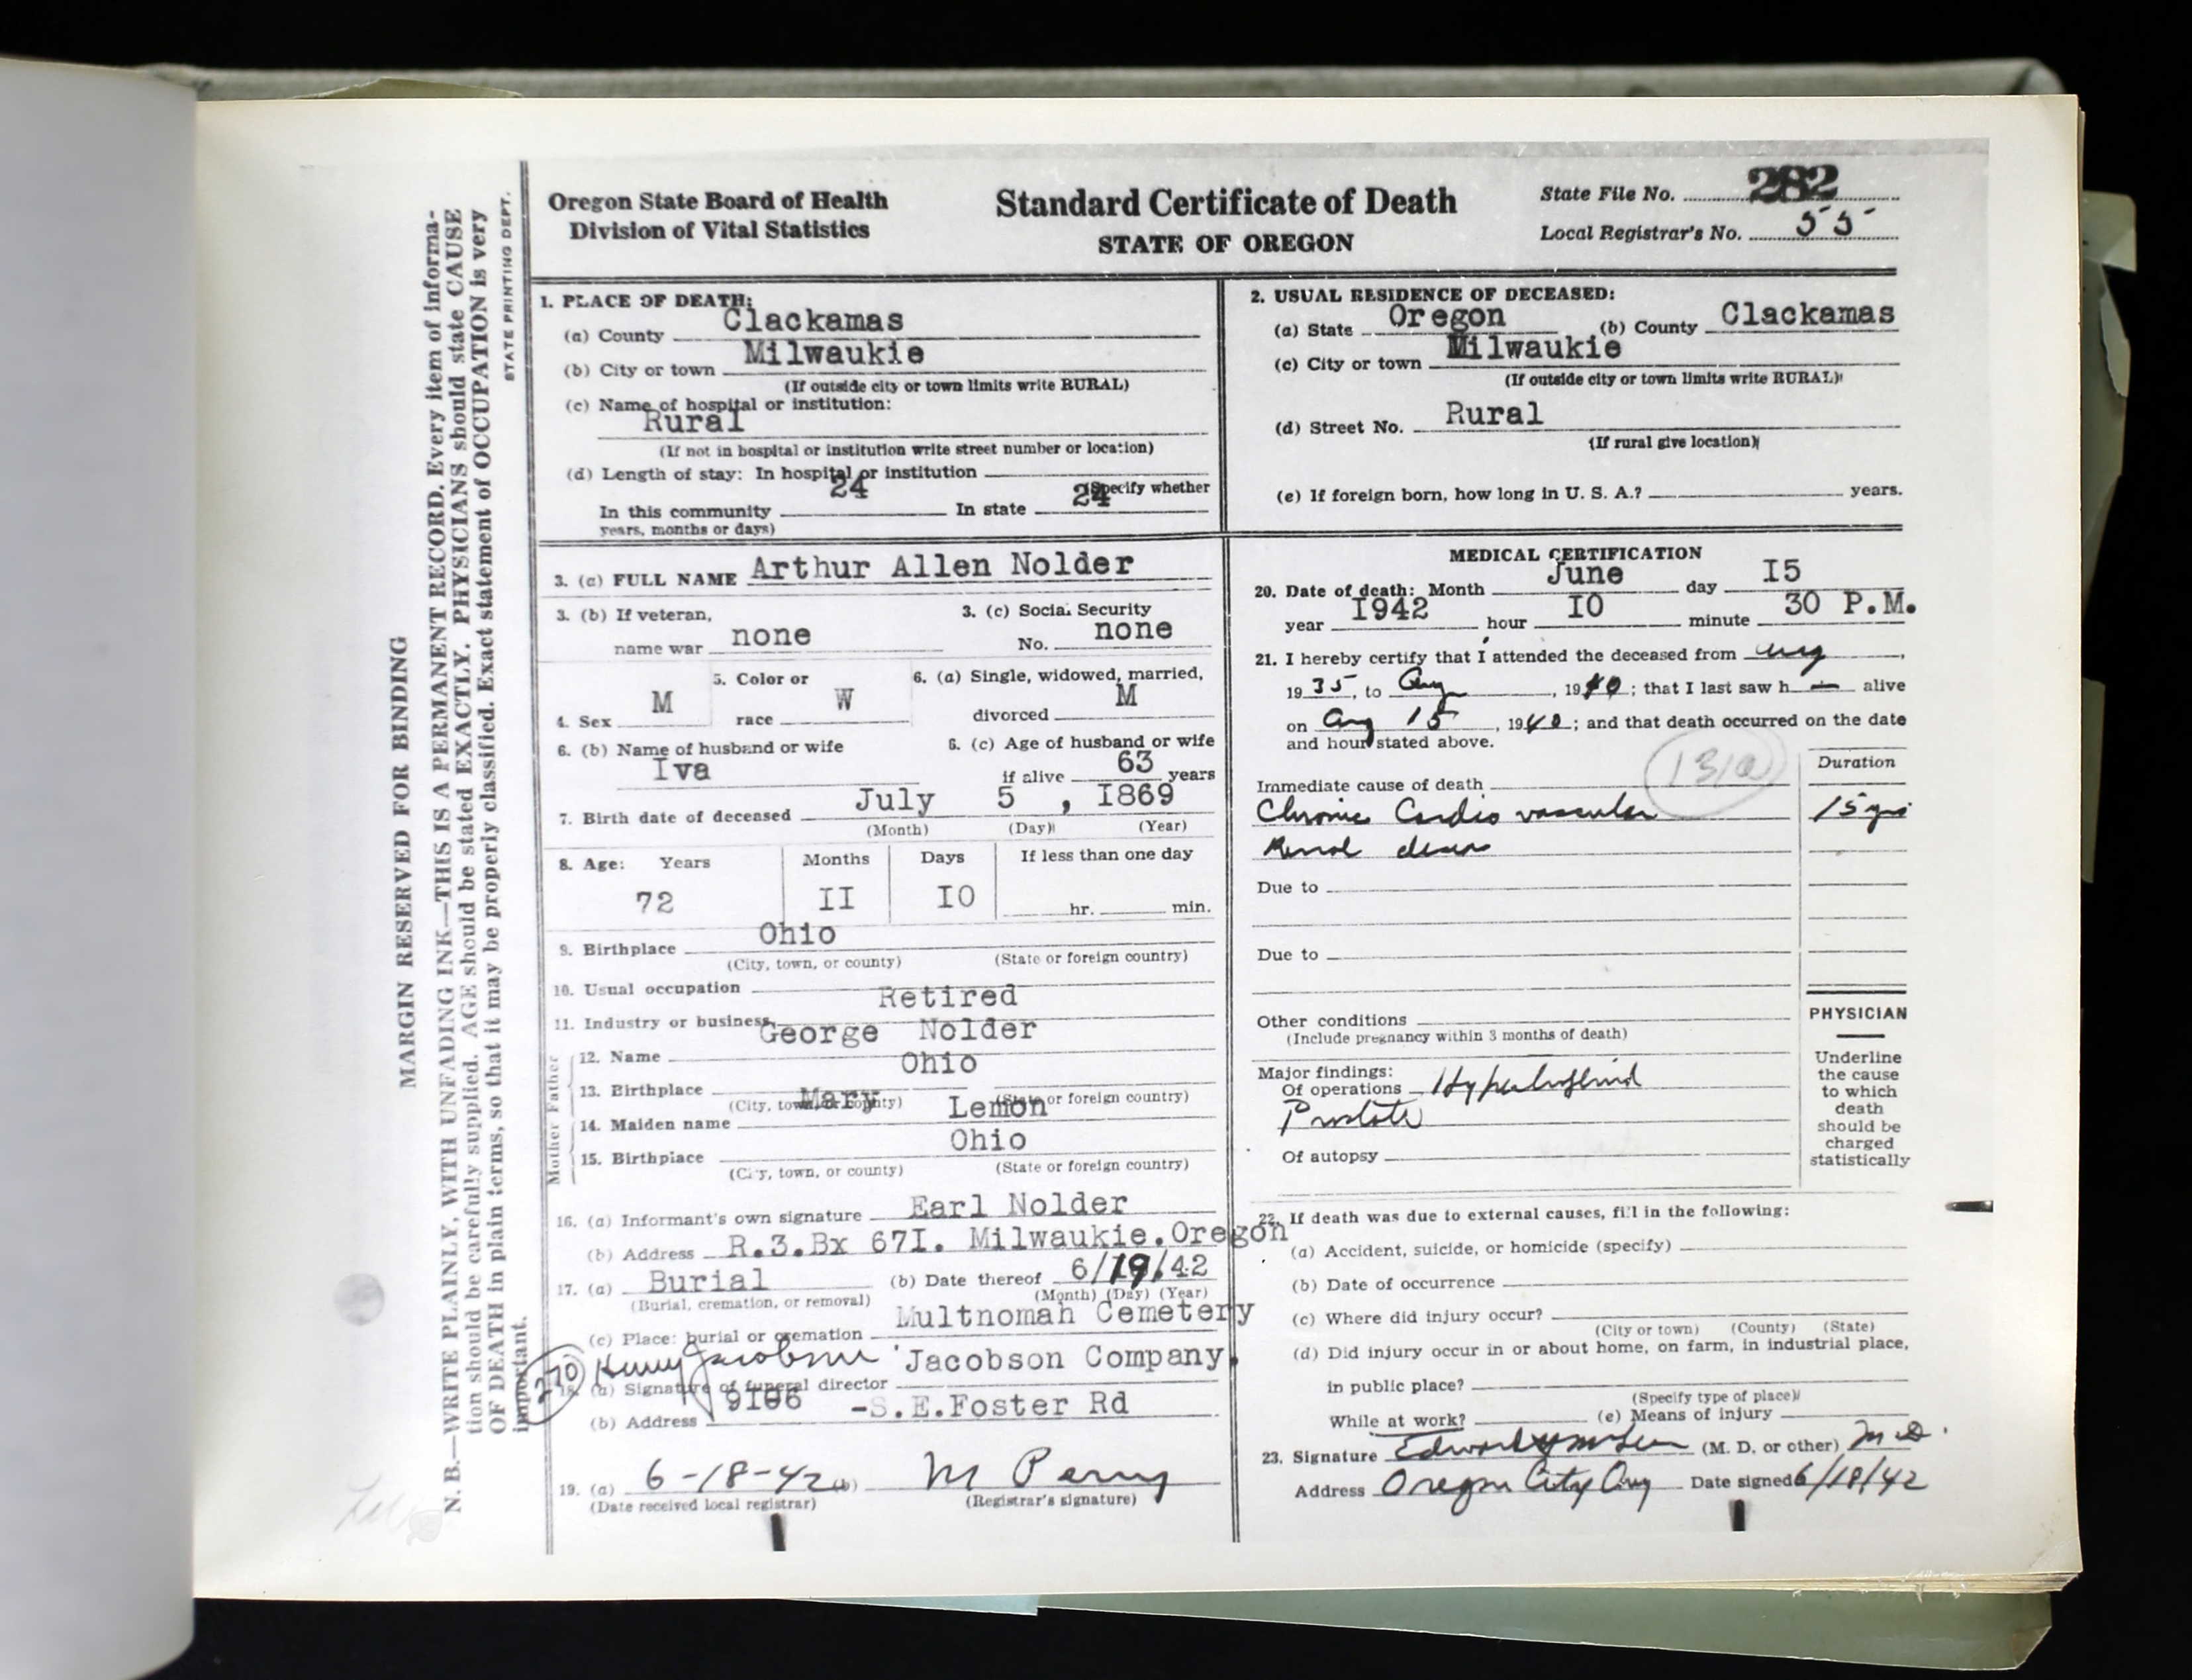 MARGIN RESERVED FOR BINDING
N. B.—WRITE PLAINLY, WITH UNFADING INK—THIS IS A PERMANENT RECORD. Every item of informa-
tion should be carefully supplied. AGE should be stated EXACTLY. PHYSICIANS should state CAUSE
OF DEATH in plain terms, so that it may be properly classified. Exact statement of OCCUPATION is very
important.
STATE PRINTING DEPT.
Oregon State Board of Health
Division of Vital Statistics
Standard Certificate of Death
STATE OF OREGON
State File No. 282
Local Registrar's No. 55
1. PLACE OF DEATH:
(a) County Clackamas
(b) City or town Milwaukie
(If outside city or town limits write RURAL)
(c) Name of hospital or institution:
Rural
(If not in hospital or institution write street number or location)
(d) Length of stay: In hospital or institution
(Specify whether
In this community 24 In state 24
years, months or days)
2. USUAL RESIDENCE OF DECEASED:
(a) State Oregon (b) County Clackamas
(c) City or town Milwaukie
(If outside city or town limits write RURAL)
(d) Street No. Rural
(If rural give location)
(e) If foreign born, how long in U. S. A.? years.
3. (a) FULL NAME Arthur Allen Nolder
3. (b) If veteran, 3. (c) Social Security
name war none No. none
5. Color or 6. (a) Single, widowed, married,
4. Sex M race W divorced M
6. (b) Name of husband or wife 6. (c) Age of husband or wife
Iva if alive 63 years
7. Birth date of deceased July 5 , I869
(Month) (Day) (Year)
8. Age: Years Months Days If less than one day
72 II IO hr. min.
9. Birthplace Ohio
(City, town, or county) (State or foreign country)
10. Usual occupation
Retired
11. Industry or business
George Nolder
12. Name
Ohio
13. Birthplace
(City, town, or county) (State or foreign country)
Mary Lemon
14. Maiden name
Ohio
15. Birthplace
(City, town, or county) (State or foreign country)
Mother Father
16. (a) Informant's own signature Earl Nolder
(b) Address R.3.Bx 67I. Milwaukie.Oregon
17. (a) Burial (b) Date thereof 6/19/42
(Burial, cremation, or removal) (Month) (Day) (Year)
(c) Place: burial or cremation Multnomah Cemetery
270 Henry Jacobson Jacobson Company.
18. (a) Signature of funeral director
(b) Address S.E.Foster Rd
19. (a) 6-18-42 (b) M Perry
(Date received local registrar) (Registrar's signature)
MEDICAL CERTIFICATION
20. Date of death: Month June day I5
year I942 hour IO minute 30 P.M.
21. I hereby certify that I attended the deceased from Aug,
1935, to Aug, 1940; that I last saw h alive
on Aug 15, 1940; and that death occurred on the date
and hour stated above.
131a
Duration
Immediate cause of death
Chronic Cardio vascular 15 yrs
Renal disease
Due to
Due to
Other conditions
(Include pregnancy within 3 months of death)
Major findings:
Of operations Hypertrophied
Prostate
Of autopsy
PHYSICIAN
Underline
the cause
to which
death
should be
charged
statistically
22. If death was due to external causes, fill in the following:
(a) Accident, suicide, or homicide (specify)
(b) Date of occurrence
(c) Where did injury occur?
(City or town) (County) (State)
(d) Did injury occur in or about home, on farm, in industrial place,
in public place?
(Specify type of place)
While at work? (e) Means of injury
23. Signature Edward (M. D. or other) M D.
Address Oregon City Org Date signed 6/18/42